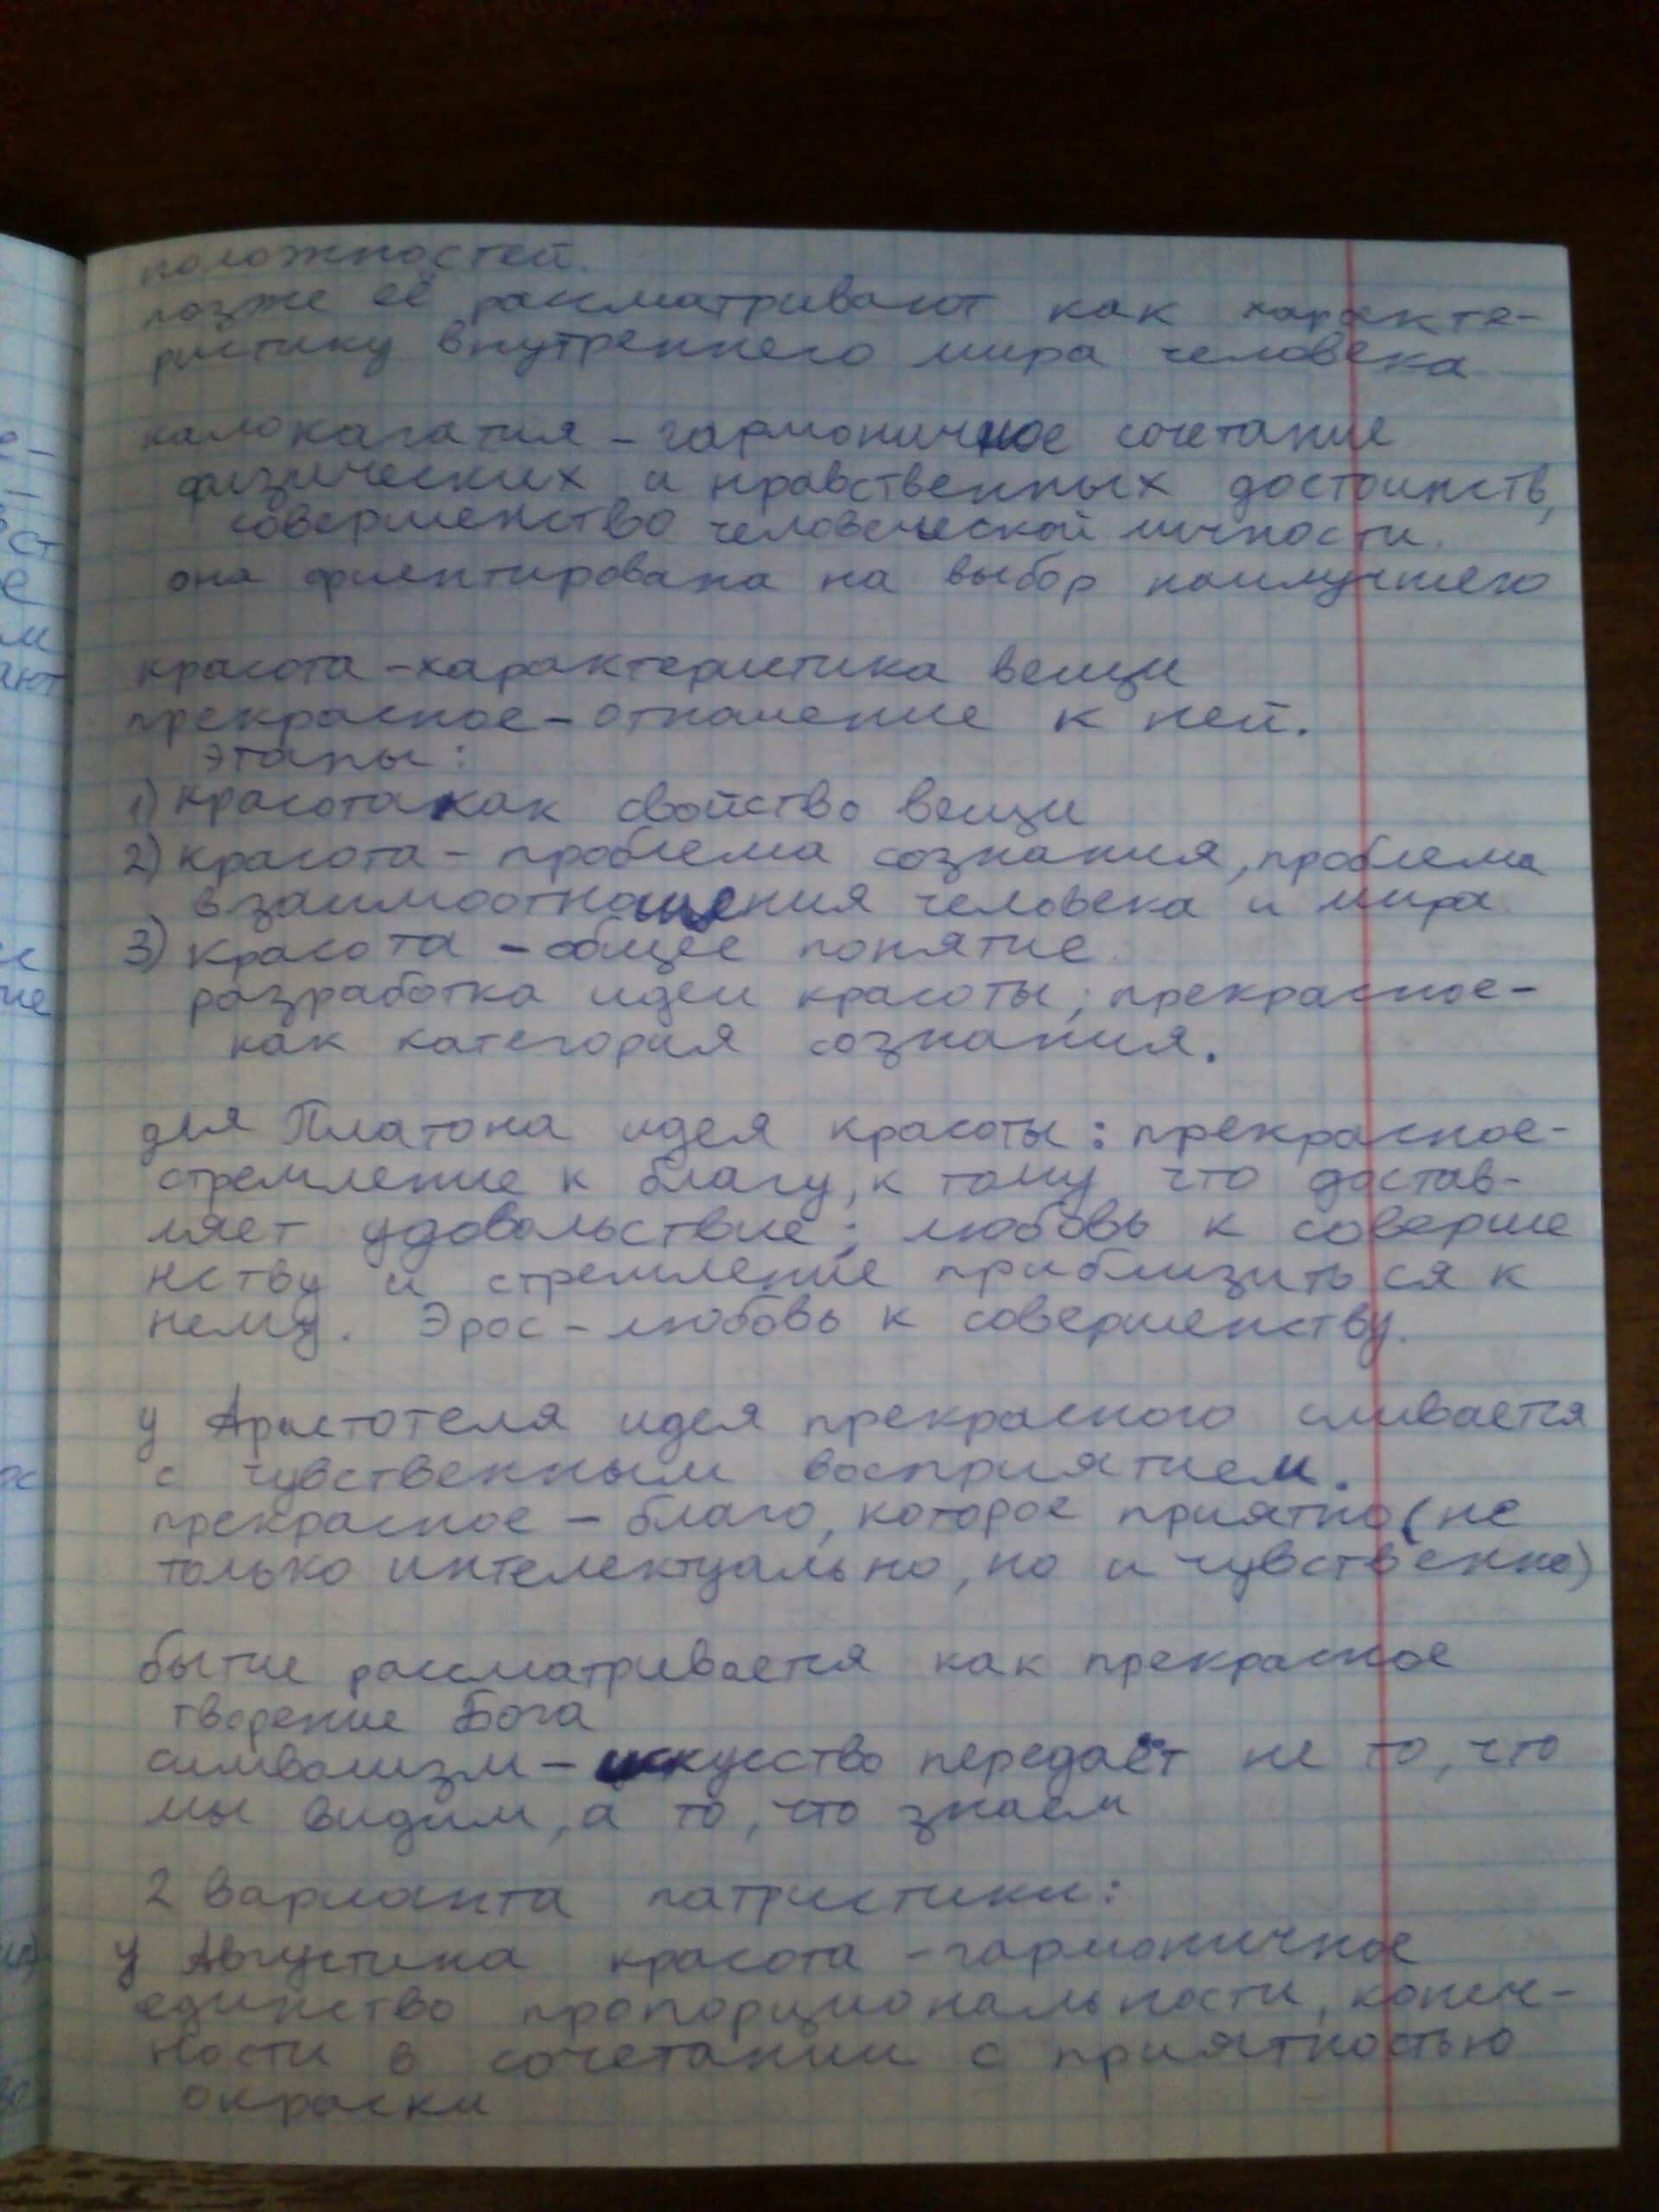 положностей.
позже её рассматривают как характе-
ристику внутреннего мира человека
калокагатия - гармоничное сочетание
физических и нравственных достоинств,
совершенство человеческой личности.
она ориентирована на выбор наилучшего
красота - характеристика вещи
прекрасное - отношение к ней.
этапы:
1) красота как свойство вещи
2) красота - проблема сознания, проблема
взаимоотношения человека и мира
3) красота - общее понятие.
разработка идеи красоты; прекрасное -
как категория сознания.
для Платона идея красоты: прекрасное -
стремление к благу, к тому что достав-
ляет удовольствие; любовь к соверше
нству и стремление приблизиться к
нему. Эрос - любовь к совершенству.
у Аристотеля идея прекрасного сливается
с чувственным восприятием.
прекрасное - благо, которое приятно (не
только интелектуально, но и чувственно)
бытие рассматривается как прекрасное
творение Бога
символизм - искусство передаёт не то, что
мы видим, а то, что знаем
2 варианта патристики:
у Августина красота - гармоничное
единство пропорциональности, конеч-
ности в сочетании с приятностью
окраски